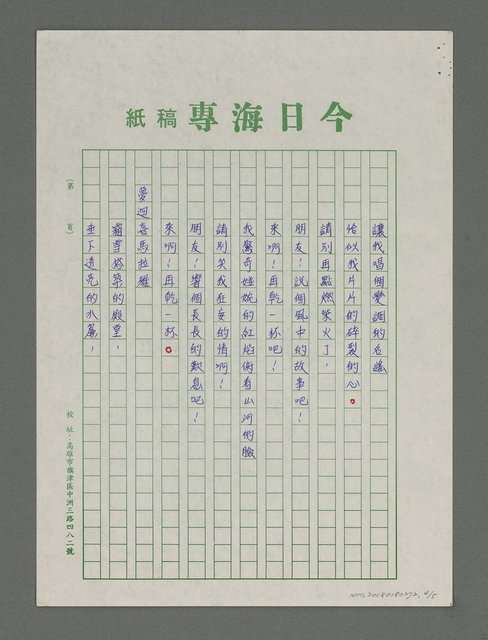 今日海專稿紙
讓我唱個變調的名謠
恰似我片片的碎裂的心。
請別再點燃柴火了，
朋友！說個風中的故事吧！
來啊！再乾一杯吧！
我驚奇嫣婉的紅焰俯看山河的臉
請別笑我狂妄的情啊！
朋友！響個長長的歎息吧！
來啊！再乾一杯。
夢迴喜馬拉雅
霜雪搭築的殿堂！
垂下透亮的水簾，
（第　頁）
校址：高雄市旗津區中洲三路四八二號
NMTL20080180272, 4/5